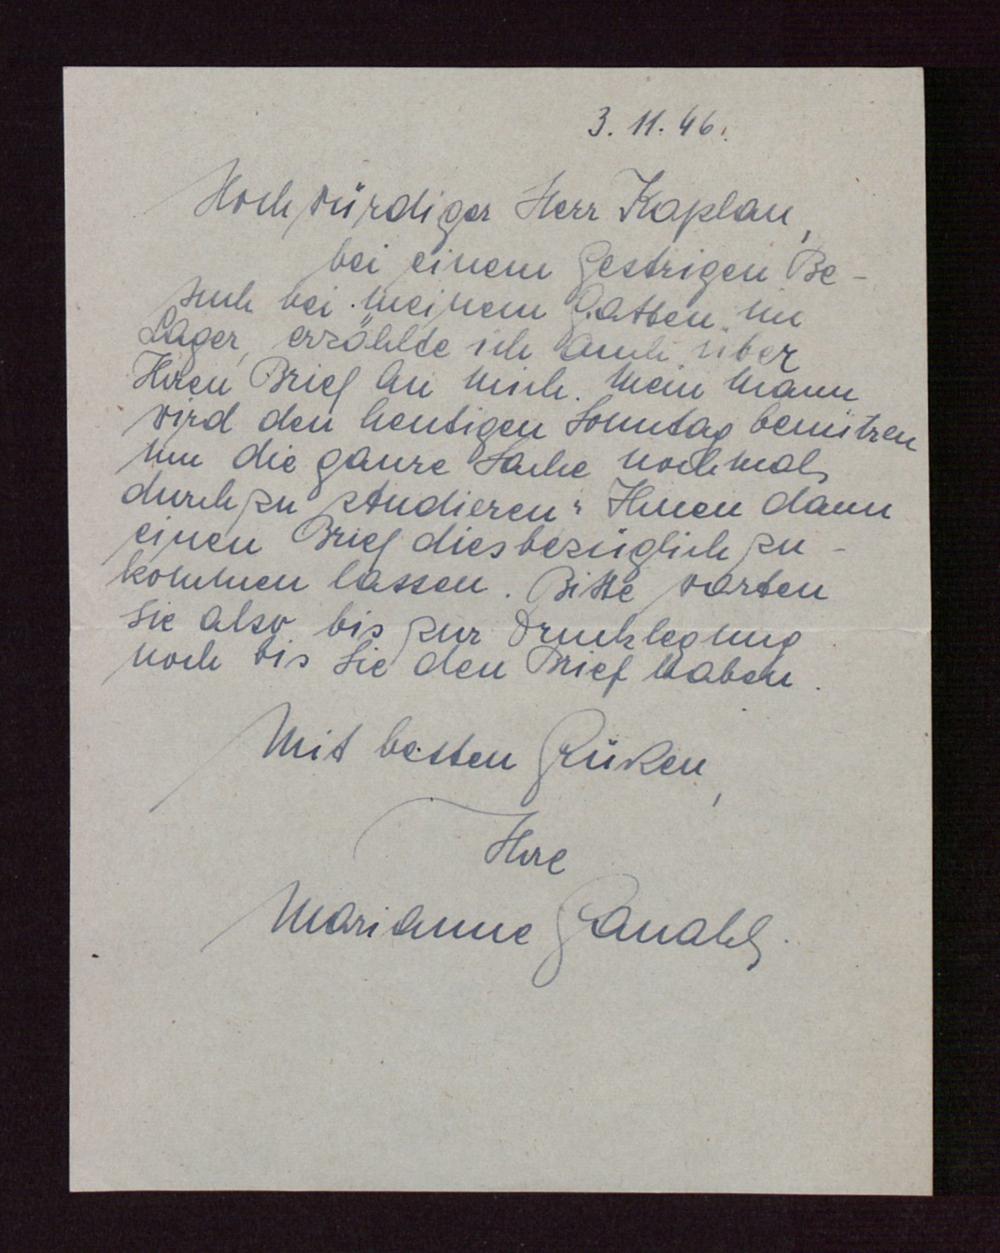 3.11.46.
Hochwürdiger Herr Kaplan,
bei einem gestrigen Be-
such bei meinem Gatten im
Lager, erzählte ich auch über
Ihren Brief an mich. Mein Mann
wird den heutigen Sonntag benützen
um die ganze Sache nochmals
durchzustudieren u. Ihnen dann
einen Brief diesbezüglich zu-
kommen lassen. Bitte warten
Sie also bis zur Drucklegung
noch bis Sie den Brief haben.
Mit besten Grüßen,
Ihre
Marianne Ganahl.